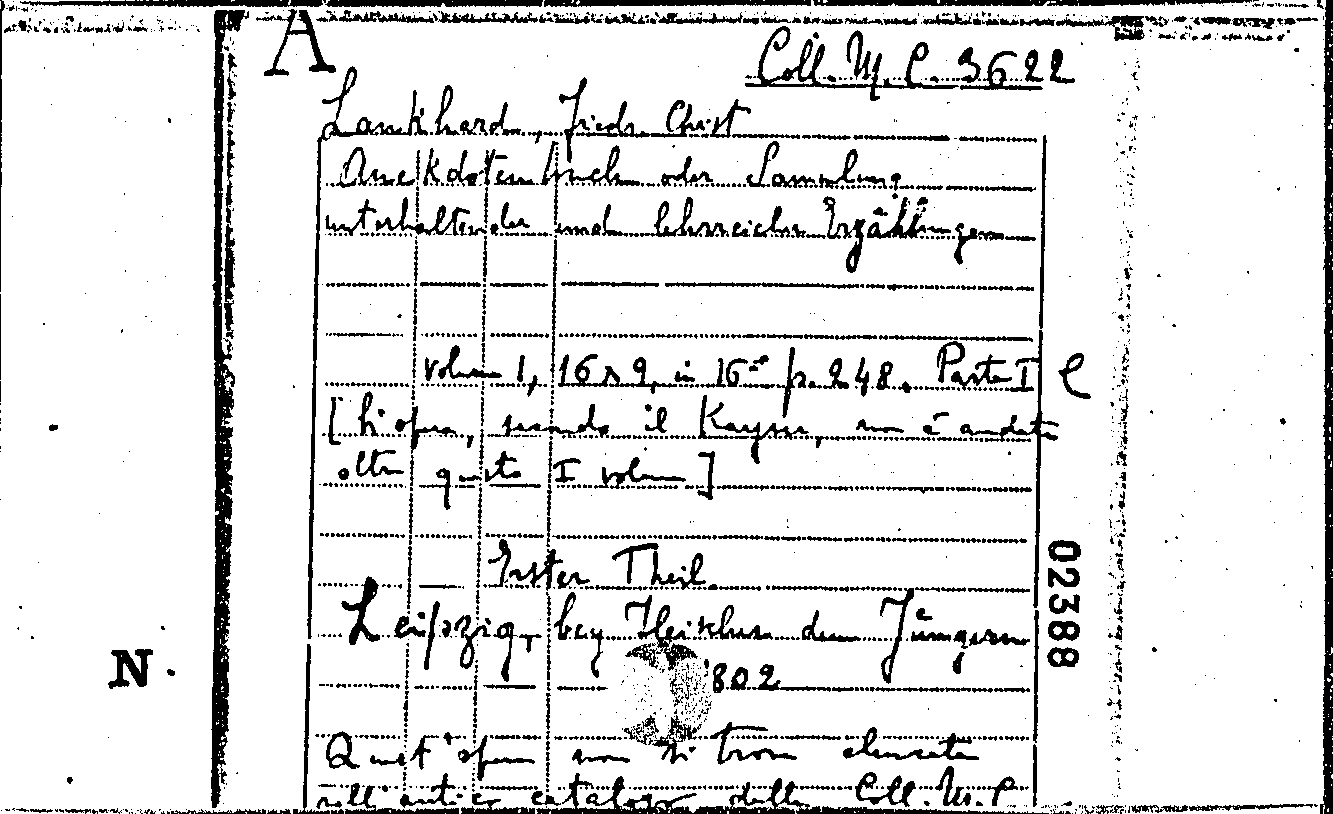 A
Coll. M. P. 3622
Laukhard, Friedr. Christ
Anekdotenbuch oder Sammlung
unterhaltender und lehrreicher Erzählungen
volume 1, 16 x 9, in 16° p. 248. Parte I
[L'opera, secondo il Kayser, non è andata
oltre questo I volume]
Erster Theil.
Leipzig, bey Fleischer dem Jüngern
802
Quest'opera non si trova elencata
nell'antico catalogo della Coll. M. P.
02388
N